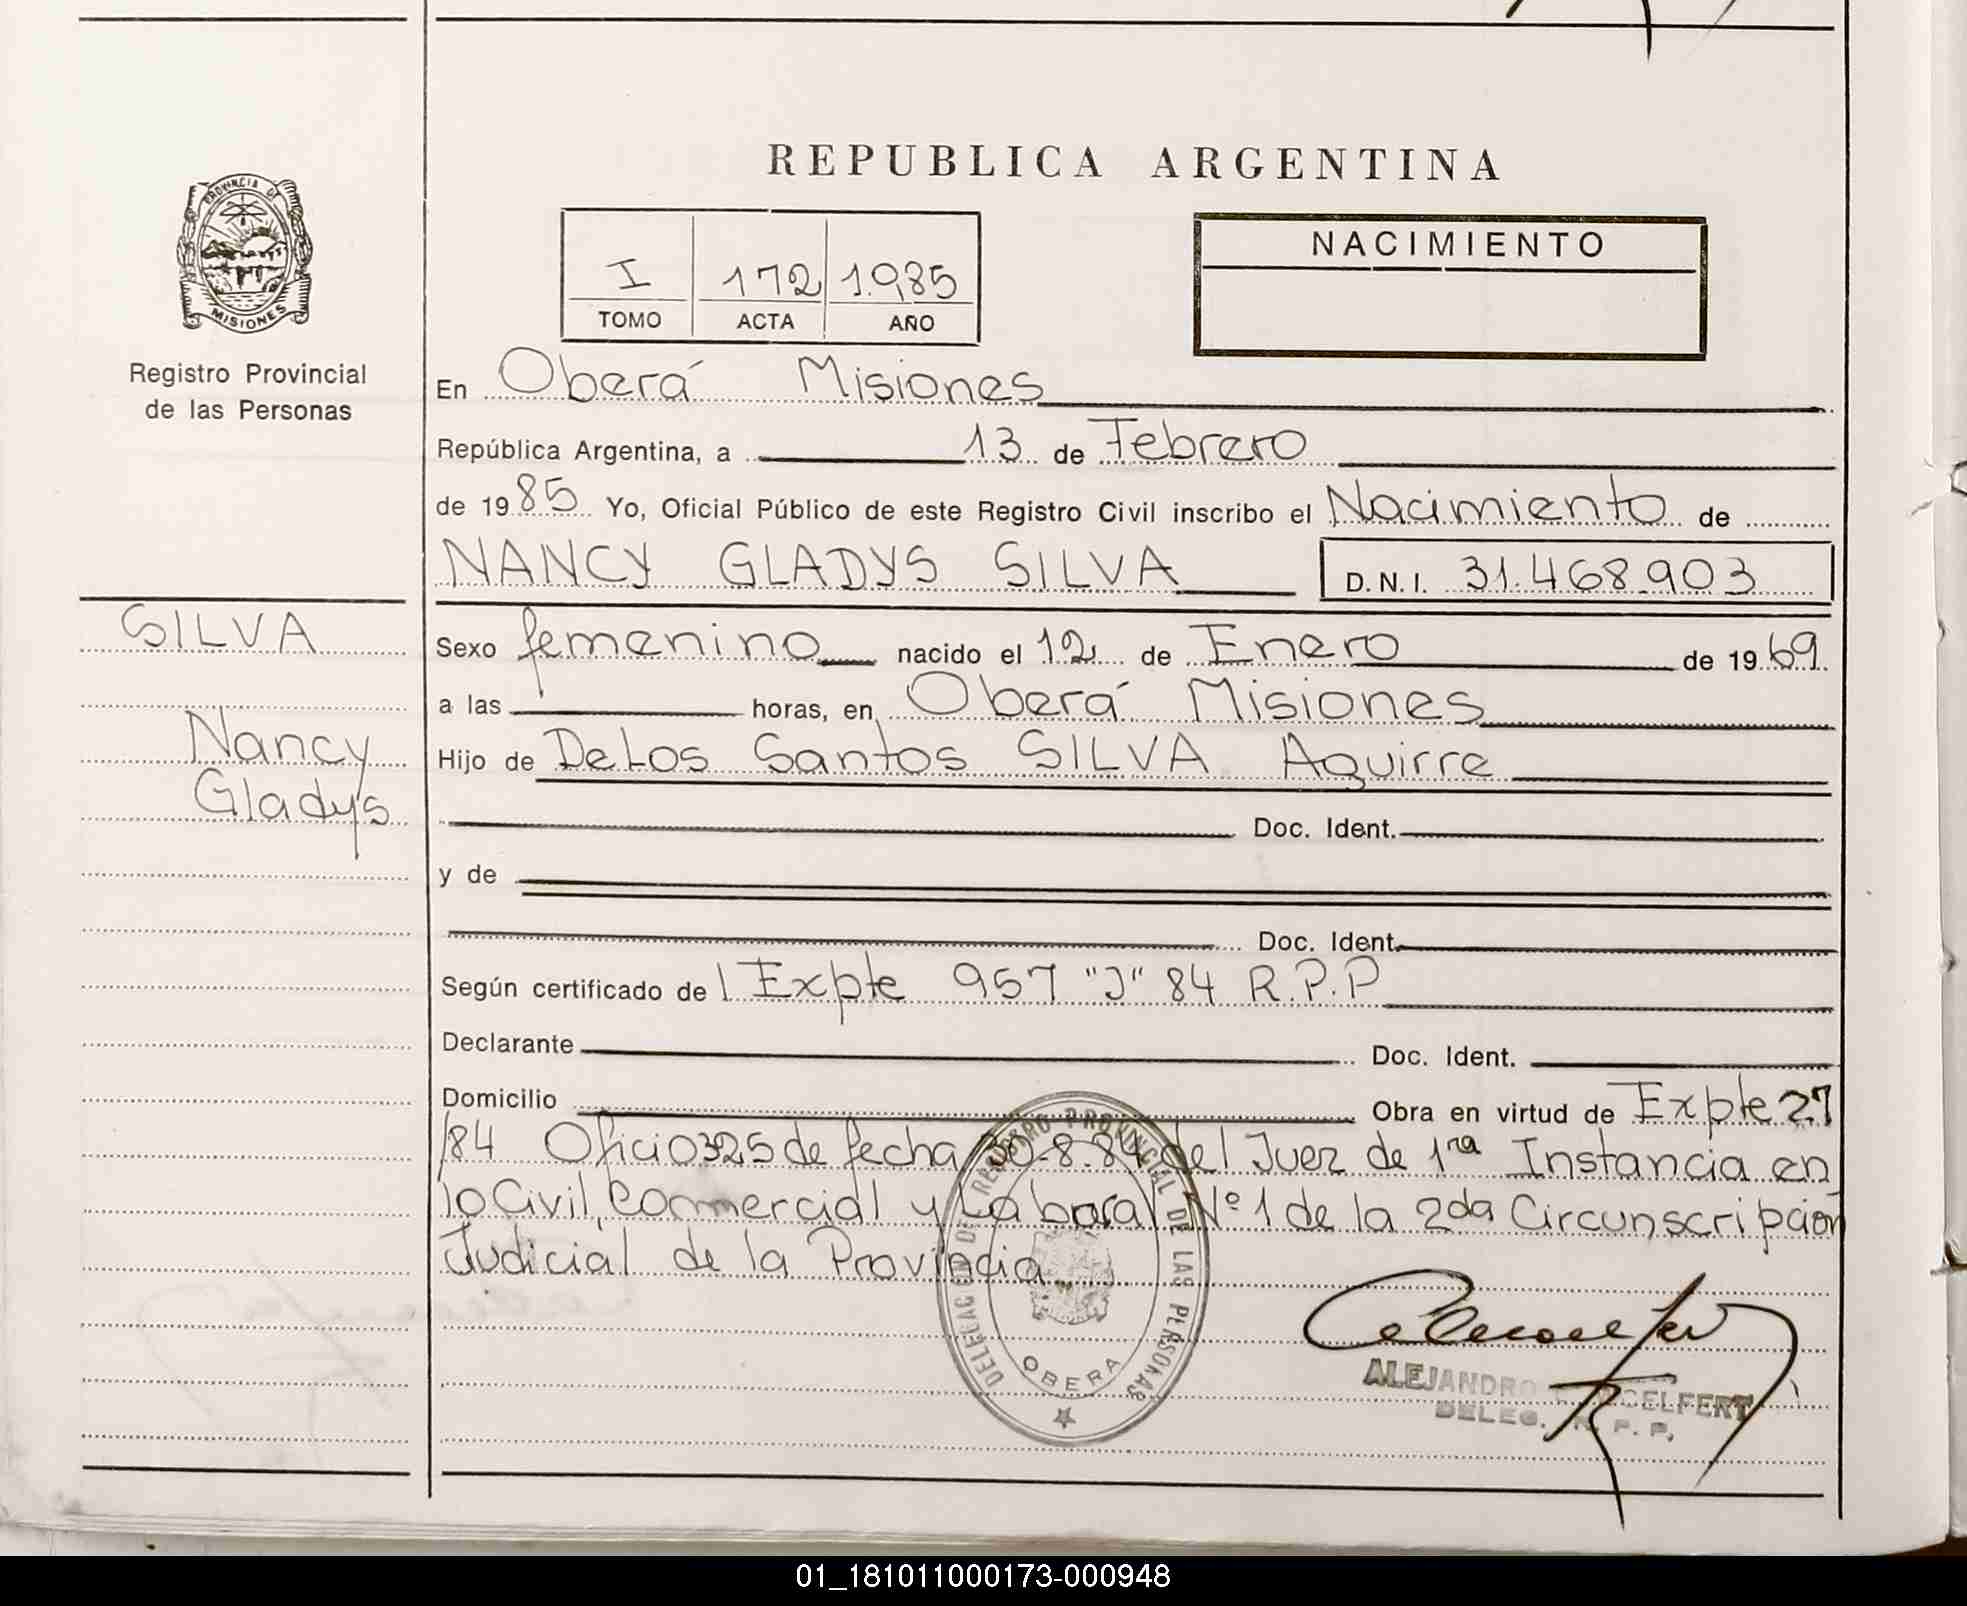 REPUBLICA ARGENTINA
PROVINCIA DE
MISIONES
Registro Provincial
de las Personas
I 172 1.985
TOMO ACTA AÑO
NACIMIENTO
En Oberá Misiones
República Argentina, a 13 de Febrero
de 1985 Yo, Oficial Público de este Registro Civil inscribo el Nacimiento de
NANCY GLADYS SILVA D.N.I. 31.468.903
SILVA
Nancy
Gladys
Sexo femenino nacido el 12 de Enero de 1969
a las horas, en Oberá Misiones
Hijo de De Los Santos SILVA Aguirre
Doc. Ident.
y de
Doc. Ident.
Según certificado de l Expte 957 "J" 84 R.P.P
Declarante Doc. Ident.
Domicilio Obra en virtud de Expte 27
/84 Oficio 325 de fecha 30-8-84 del Juez de 1ra Instancia en
lo Civil, Comercial y Laboral Nº 1 de la 2da Circunscripción
Judicial de la Provincia
DELEGACION DE REGISTRO PROVINCIAL DE LAS PERSONAS
OBERA
ALEJANDRO
DELEG. R. P. P.
01_181011000173-000948